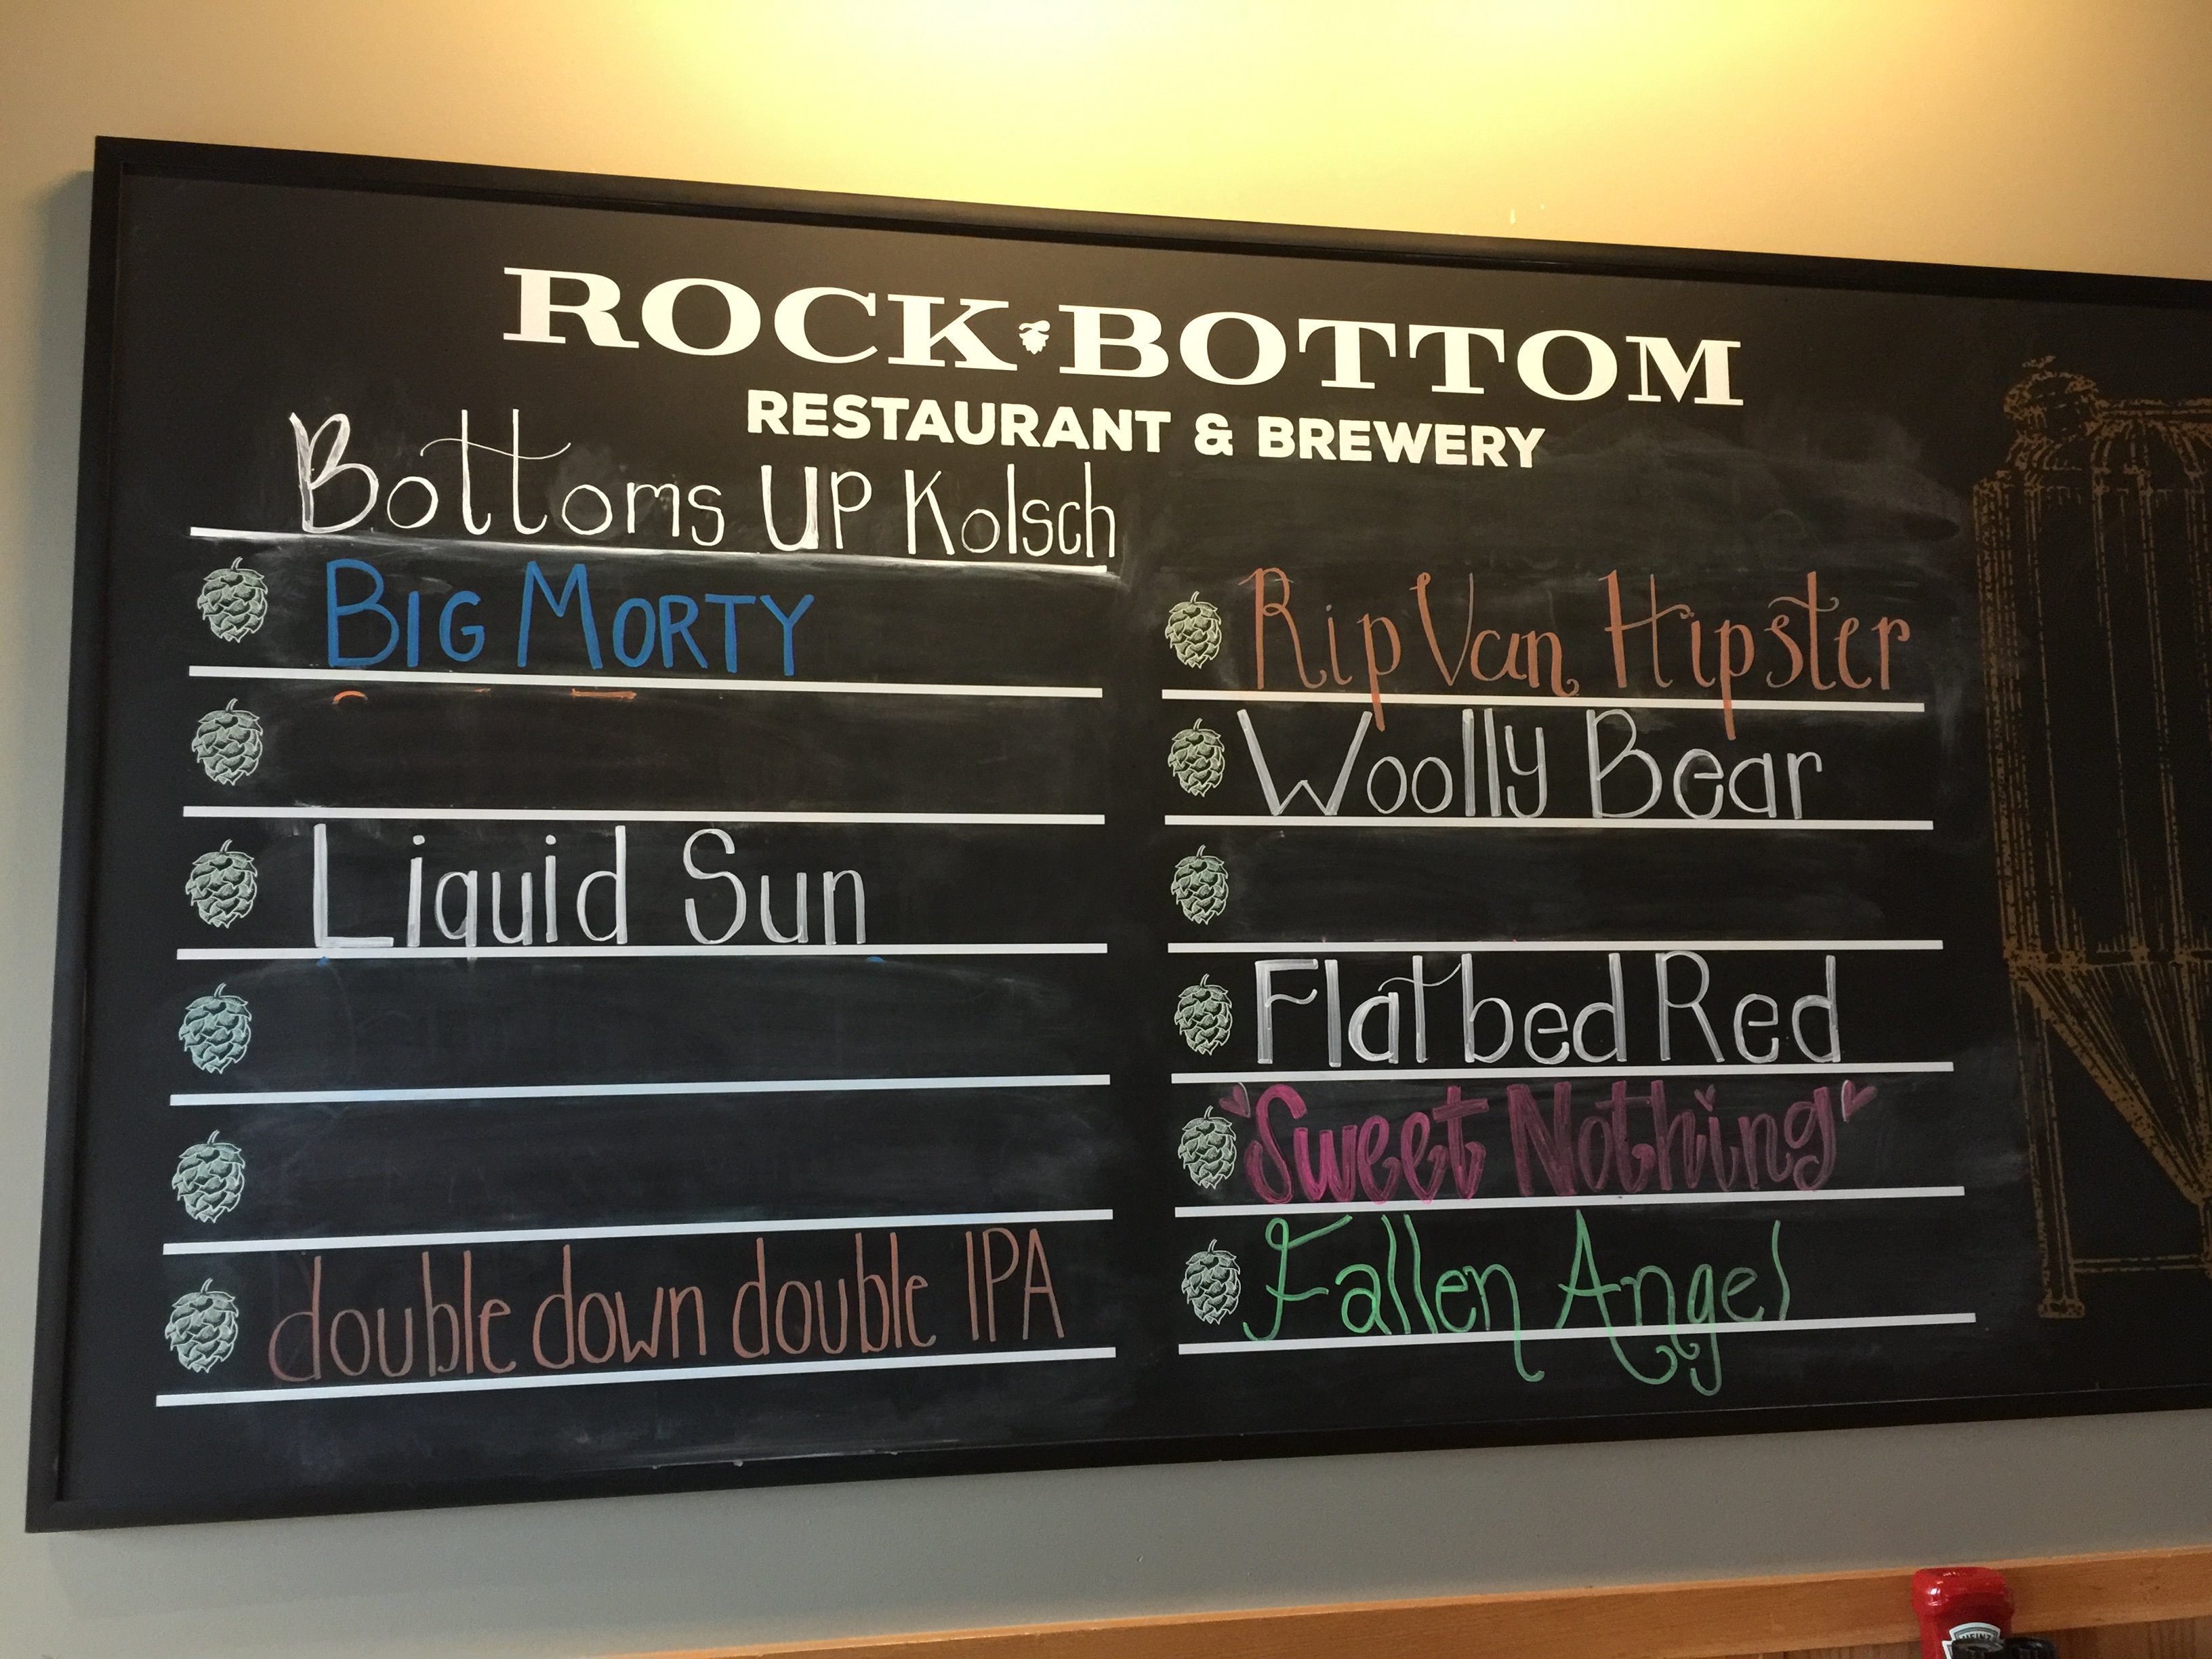 ROCK BOTTOM
RESTAURANT & BREWERY
Bottoms UP Kolsch
BIG MORTY
Liquid Sun
double down double IPA
Rip Van Hipster
Woolly Bear
Flatbed Red
Sweet Nothing
Fallen Angel
HEINZ